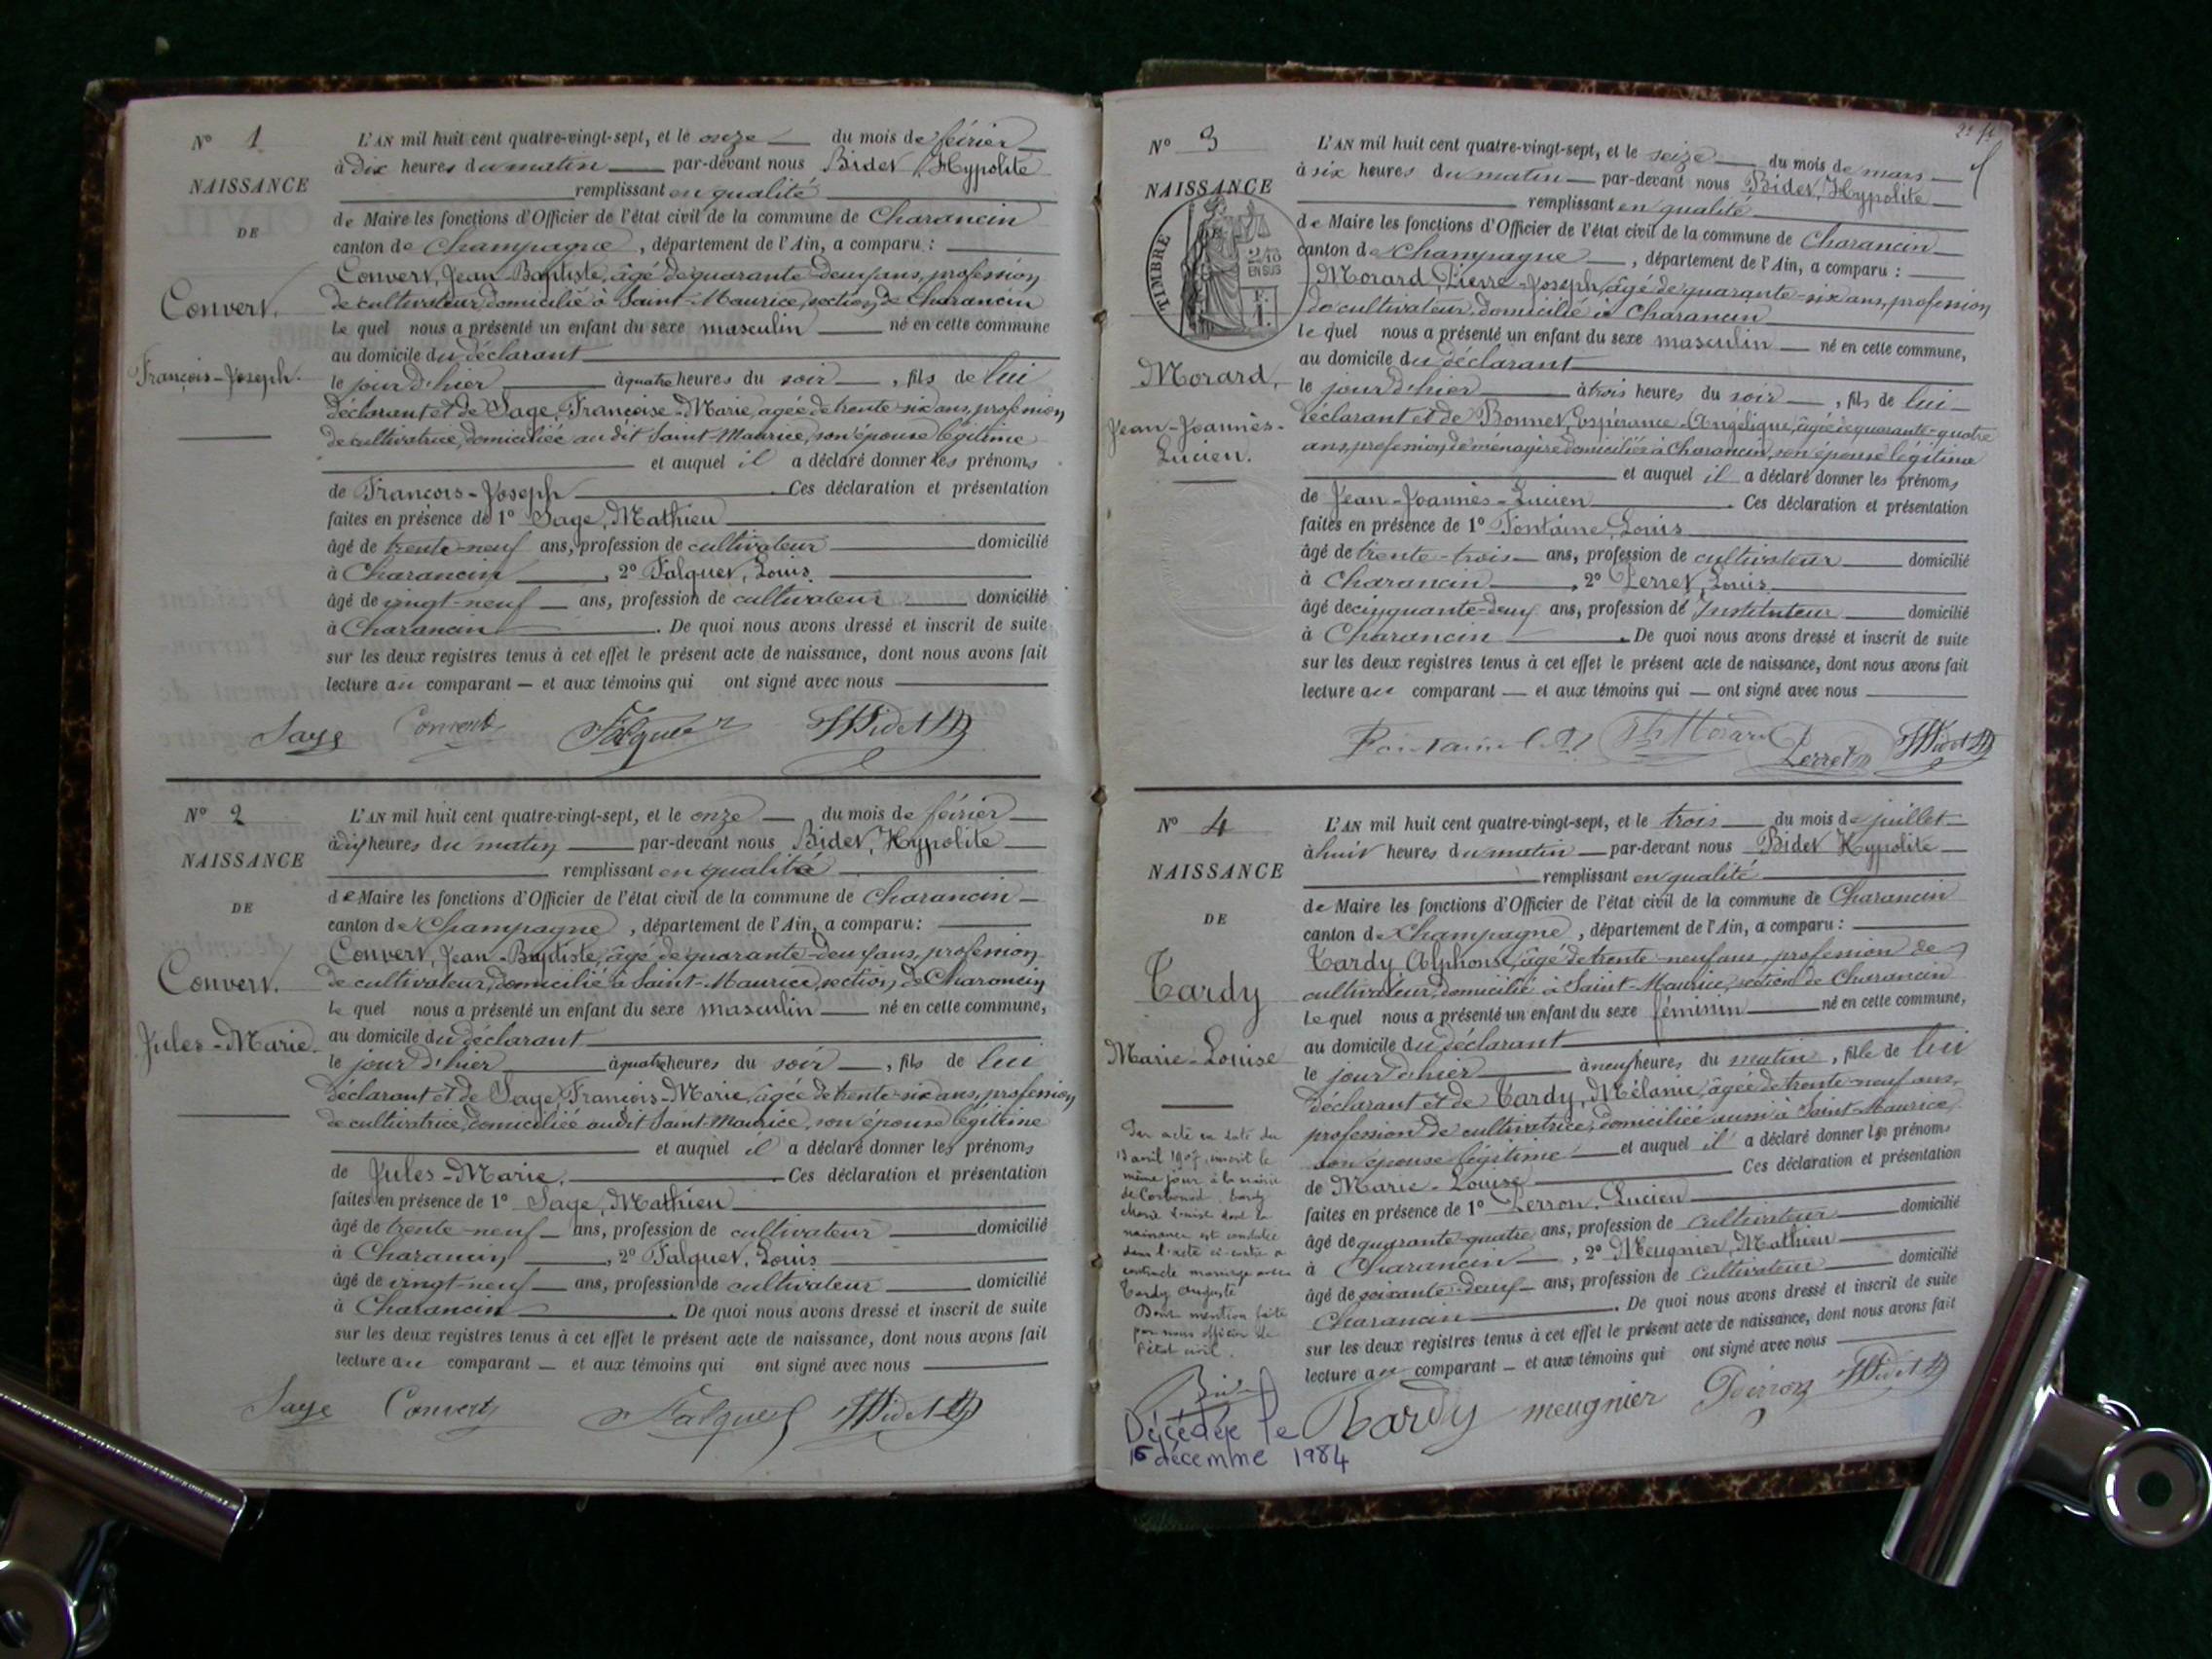 N° 1
NAISSANCE
DE
Convert,
François-Joseph.
L'AN mil huit cent quatre-vingt-sept, et le onze du mois de février
à dix heures du matin par-devant nous Bidet, Hypolite
remplissant en qualité
de Maire les fonctions d'Officier de l'état civil de la commune de Charancin
canton de Champagne, département de l'Ain, a comparu :
Convert, Jean-Baptiste, âgé de quarante-deux ans, profession
de cultivateur, domicilié à Saint-Maurice, section de Charancin
le quel nous a présenté un enfant du sexe masculin né en cette commune
au domicile du déclarant
le jour d'hier à quatre heures du soir, fils de lui
déclarant et de Sage, Françoise-Marie, agée de trente-six ans, profession
de cultivatrice, domiciliée au dit Saint-Maurice, son épouse légitime
et auquel il a déclaré donner les prénoms
de François-Joseph. Ces déclaration et présentation
faites en présence de 1° Sage, Mathieu
âgé de trente-neuf ans, profession de cultivateur domicilié
à Charancin, 2° Falquet, Louis.
âgé de vingt-neuf ans, profession de cultivateur domicilié
à Charancin. De quoi nous avons dressé et inscrit de suite
sur les deux registres tenus à cet effet le présent acte de naissance, dont nous avons fait
lecture au comparant — et aux témoins qui ont signé avec nous
Sage Convert Falquet HBidet
N° 2
NAISSANCE
DE
Convert.
Jules-Marie.
L'AN mil huit cent quatre-vingt-sept, et le onze du mois de février
à dix heures du matin par-devant nous Bidet, Hypolite
remplissant en qualité
de Maire les fonctions d'Officier de l'état civil de la commune de Charancin
canton de Champagne, département de l'Ain, a comparu :
Convert, Jean-Baptiste, âgé de quarante-deux ans, profession
de cultivateur, domicilié à Saint-Maurice, section de Charancin
le quel nous a présenté un enfant du sexe masculin né en cette commune,
au domicile du déclarant
le jour d'hier à quatre heures du soir, fils de lui
déclarant et de Sage, François-Marie, agée de trente-six ans, profession
de cultivatrice, domiciliée audit Saint-Maurice, son épouse légitime
et auquel il a déclaré donner les prénoms
de Jules-Marie. Ces déclaration et présentation
faites en présence de 1° Sage, Mathieu
âgé de trente-neuf ans, profession de cultivateur domicilié
à Charancin, 2° Falquet, Louis
âgé de vingt-neuf ans, profession de cultivateur domicilié
à Charancin. De quoi nous avons dressé et inscrit de suite
sur les deux registres tenus à cet effet le présent acte de naissance, dont nous avons fait
lecture au comparant — et aux témoins qui ont signé avec nous
Sage Convert Falquet HBidet
N° 3
NAISSANCE
TIMBRE
2/10
EN SUS
Morard,
Jean-Joannès-
Lucien.
L'AN mil huit cent quatre-vingt-sept, et le seize du mois de mars
à six heures du matin par-devant nous Bidet, Hypolite
remplissant en qualité
de Maire les fonctions d'Officier de l'état civil de la commune de Charancin
canton de Champagne, département de l'Ain, a comparu :
Morard, Pierre-Joseph, âgé de quarante-six ans, profession
de cultivateur, domicilié à Charancin
le quel nous a présenté un enfant du sexe masculin né en cette commune,
au domicile du déclarant
le jour d'hier à trois heures du soir, fils de lui
déclarant et de Bonnet, Espérance-Angélique, âgée de quarante-quatre
ans, profession de ménagère domiciliée à Charancin, son épouse légitime
et auquel il a déclaré donner les prénoms
de Jean-Joannès-Lucien. Ces déclaration et présentation
faites en présence de 1° Fontaine, Louis
âgé de trente-trois ans, profession de cultivateur domicilié
à Charancin, 2° Perret, Louis
âgé de cinquante-deux ans, profession de Instituteur domicilié
à Charancin. De quoi nous avons dressé et inscrit de suite
sur les deux registres tenus à cet effet le présent acte de naissance, dont nous avons fait
lecture au comparant — et aux témoins qui — ont signé avec nous
Fontaine Morard Perret HBidet
N° 4
NAISSANCE
DE
Tardy
Marie-Louise
Par acte en date du
13 avril 1907 inscrit le
même jour à la mairie
de Corbonod, Tardy
Marie Louise dont la
naissance est constatée
dans l'acte ci-contre a
contracté mariage avec
Tardy Auguste
Dont mention faite
par nous officier de
l'état civil.
Décédée le
16 décembre 1984
L'AN mil huit cent quatre-vingt-sept, et le trois du mois de juillet
à huit heures du matin par-devant nous Bidet Hypolite
remplissant en qualité
de Maire les fonctions d'Officier de l'état civil de la commune de Charancin
canton de Champagne, département de l'Ain, a comparu :
Tardy, Alphonse, âgé de trente-neuf ans, profession de
cultivateur, domicilié à Saint-Maurice, section de Charancin
le quel nous a présenté un enfant du sexe féminin né en cette commune,
au domicile du déclarant
le jour d'hier à neuf heures du matin, fille de lui
déclarant et de Tardy, Mélanie, âgée de trente-neuf ans,
profession de cultivatrice, domiciliée aussi à Saint-Maurice,
son épouse légitime et auquel il a déclaré donner les prénoms
de Marie-Louise Ces déclaration et présentation
faites en présence de 1° Perron, Lucien
âgé de quarante-quatre ans, profession de cultivateur domicilié
à Charancin, 2° Meugnier, Mathieu
âgé de soixante-deux ans, profession de cultivateur domicilié
Charancin. De quoi nous avons dressé et inscrit de suite
sur les deux registres tenus à cet effet le présent acte de naissance, dont nous avons fait
lecture au comparant — et aux témoins qui ont signé avec nous
Tardy meugnier Perron HBidet